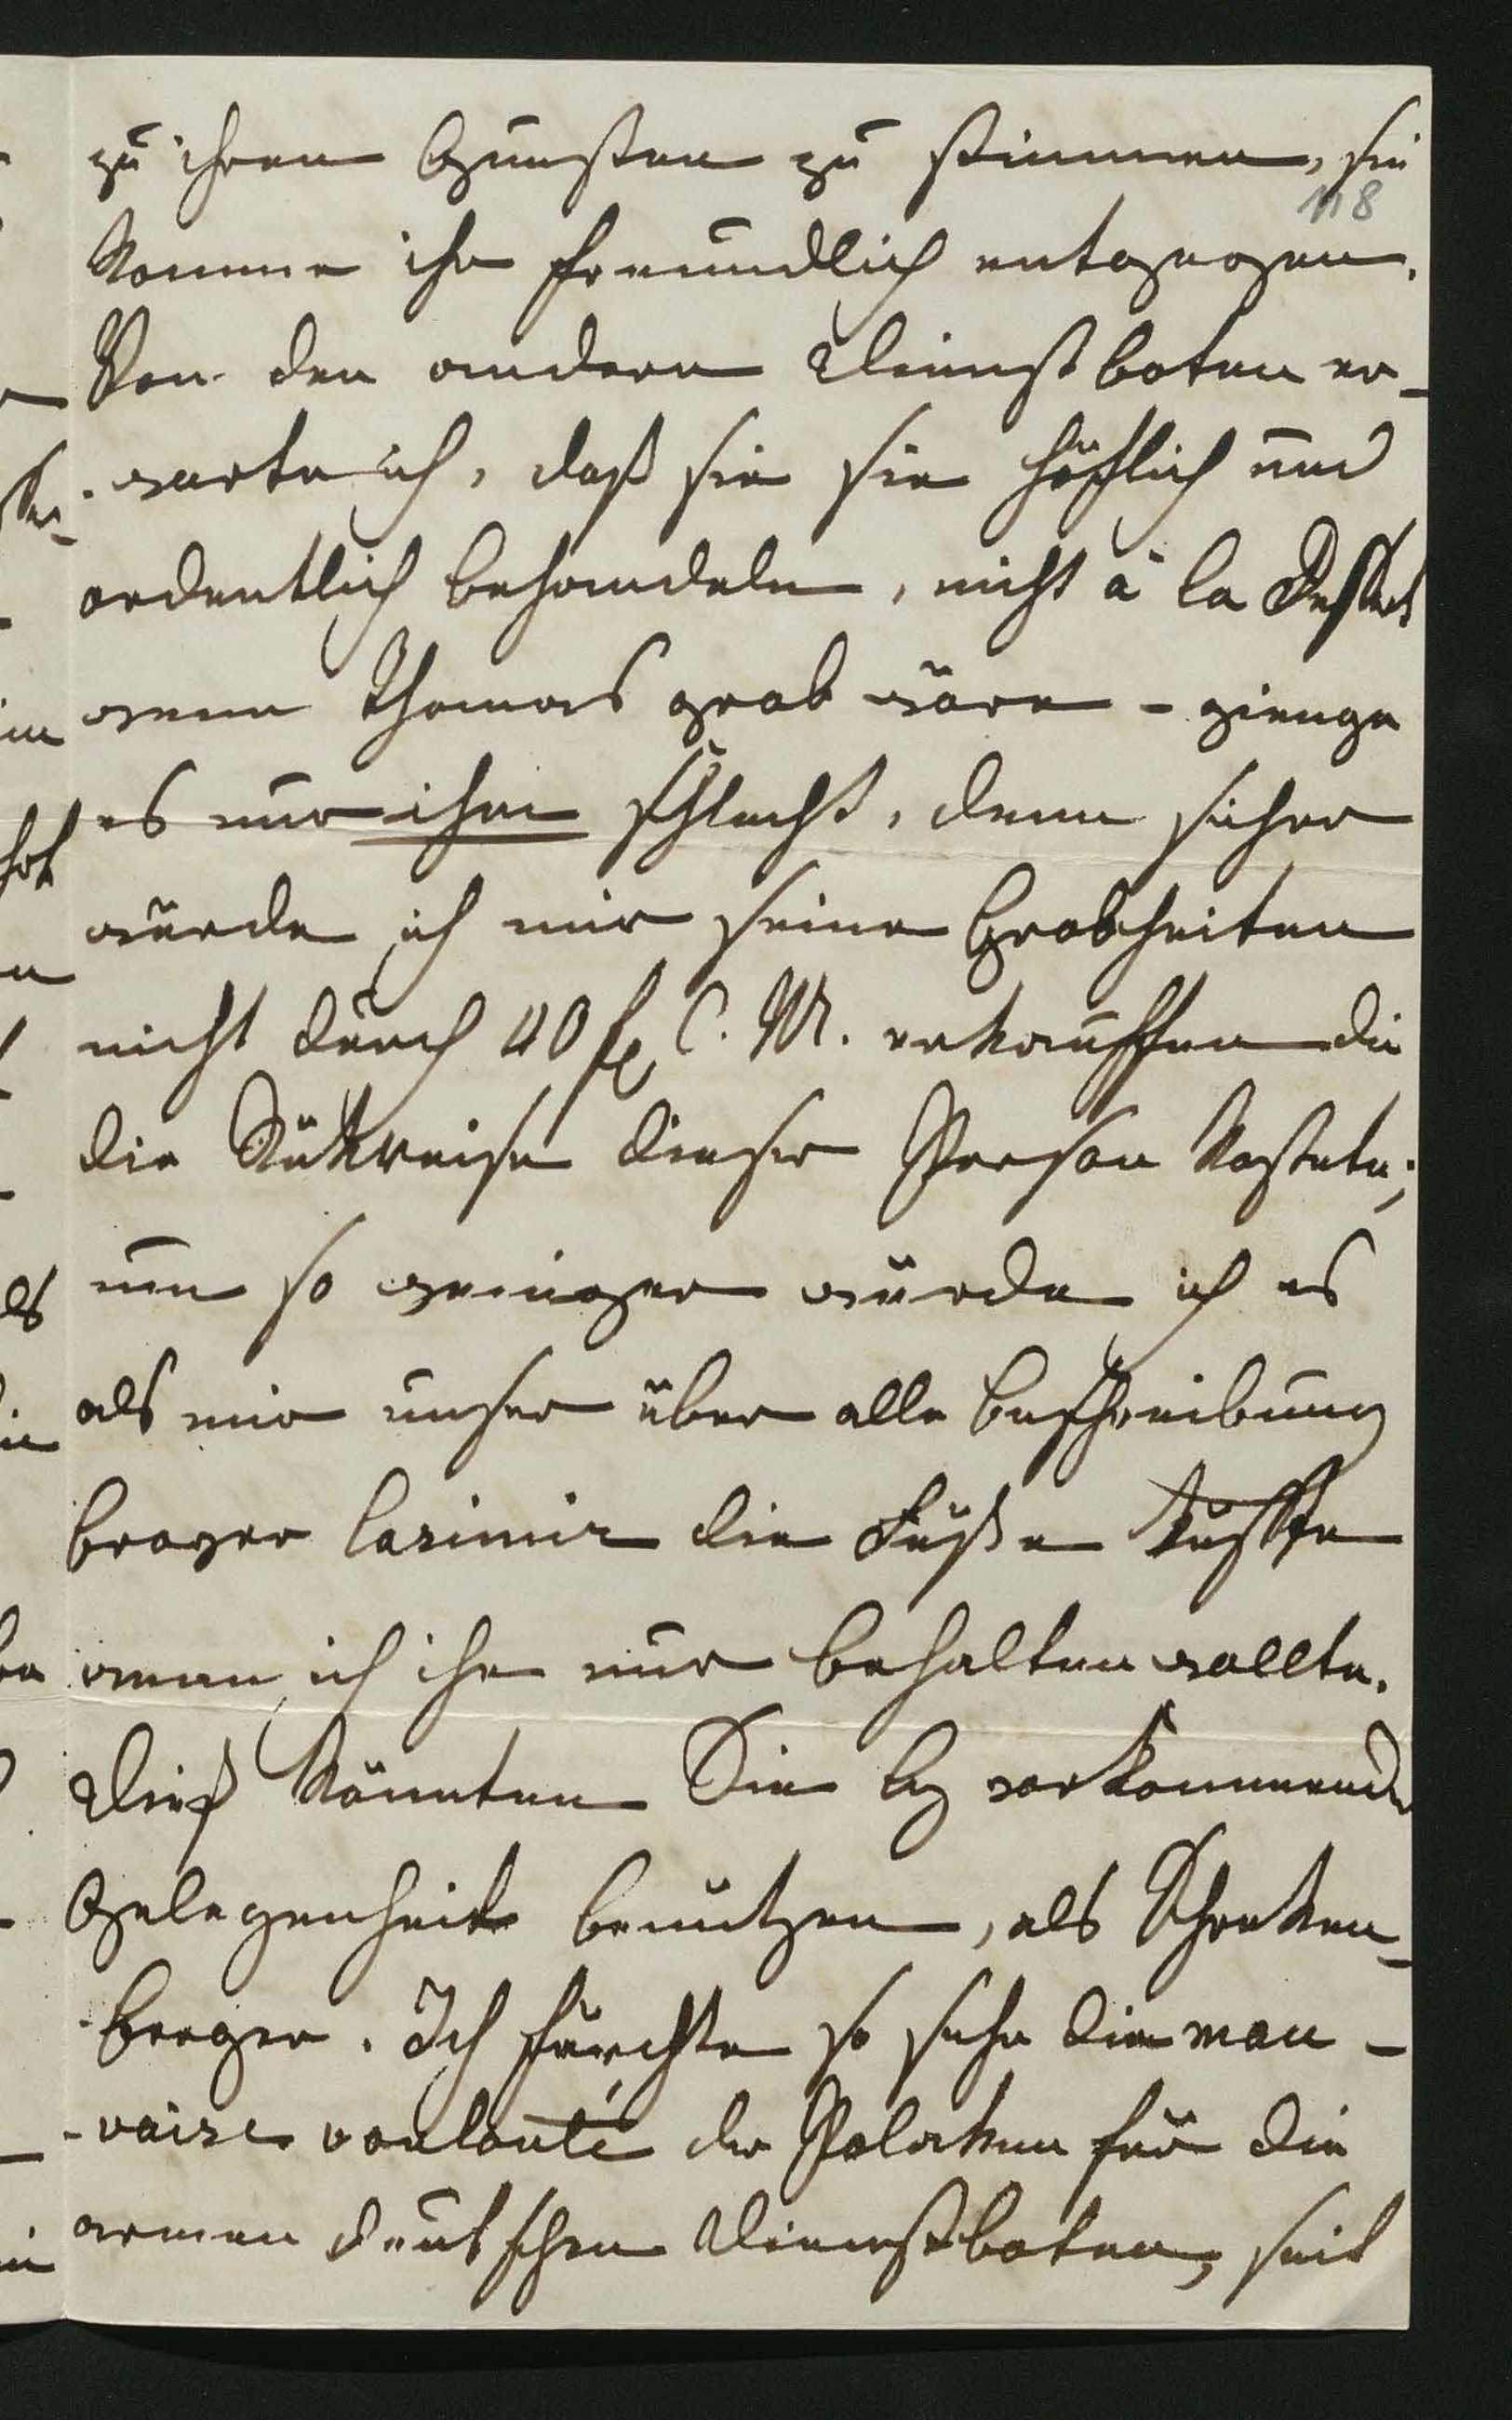 zu ihren Gunsten zu stimmen, sie
118
komme ihr freundlich entgegen.
Von den andern Dienstboten er-
-warte ich, daß sie sie höflich und
ordentlich behandeln, nicht à la
wenn Thomas grob wäre - gienge
es nur ihm schlecht, denn sicher
würde ich mir seine Grobheiten
nicht durch 40 f C. M. erkauffen die
die Rükreise dieser Person kostete;
um so weniger würde ich es
als mir unser über alle Beschreibung
braver Casimir die Füße küßte
wenn ich ihn nur behalten wollte.
Dieß könnten Sie bey vorkommender
Gelegenheit benützen, als Schreken-
berger. Ich fürchte so sehr die mau-
-vaise volonté der Polaken für die
armen deutschen Dienstboten, seit